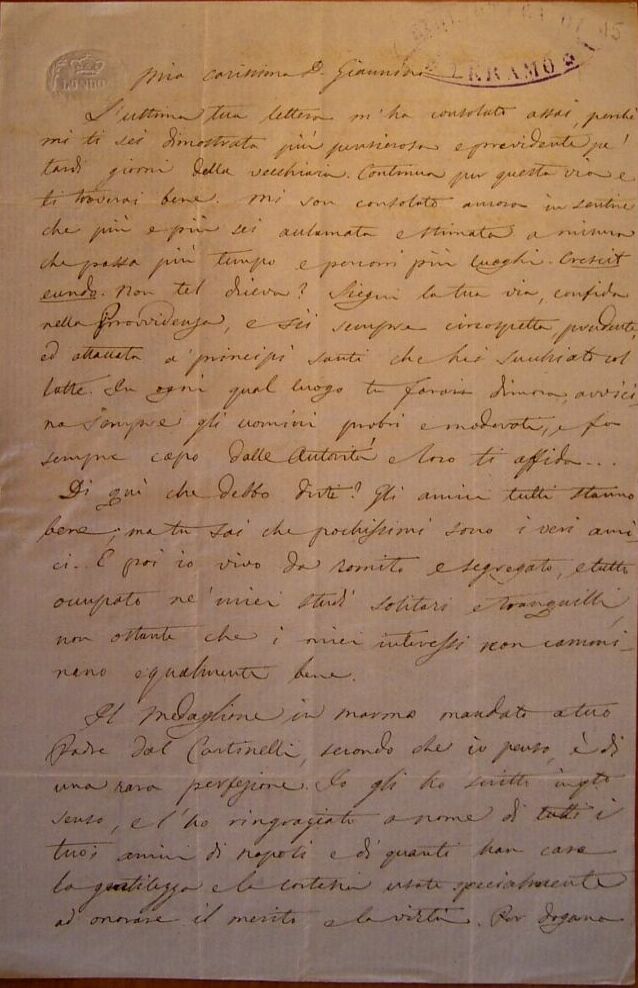 LONDO
TERAMO
Mia carissima D. Giannina
L'ultima tua lettera m'ha consolato assai, perché
mi ti sei dimostrata più pensierosa e previdente pe'
tardi giorni della vecchiaia. Continua per questa via e
ti troverai bene. Mi son consolato ancora in sentire
che più e più sei acclamata e stimata a misura
che passa più tempo e percorri più luoghi. Crescit
eundo. Non tel diceva? Siegui la tua via, confida
nella Provvidenza, e sii sempre circospetta, prudente,
ed attaccata a' principî santi che hai succhiato col
latte. In ogni qual luogo tu farai dimora, avvici-
na sempre gli uomini probi e moderati, e fa
sempre capo dalle Autorità e loro ti affida...
Di quì che debbo dirti? Gli amici tutti stanno
bene; ma tu sai che pochissimi sono i veri ami
ci... E poi io vivo da romito e segregato, e tutto
occupato ne' miei studî solitari e tranquilli,
non ostante che i miei interessi non cammi-
nano egualmente bene.
Il Medaglione in marmo mandato a tuo
Padre dal secondo che io penso, è di
una rara perfezione. Io gli ho scritto in qto
senso, e l'ho ringraziato a nome di tutti i
tuoi amici di Napoli e di quanti han cara
la gentilezza e la cortesia usate specialmente
ad onorare il merito e la virtù. Per dogana